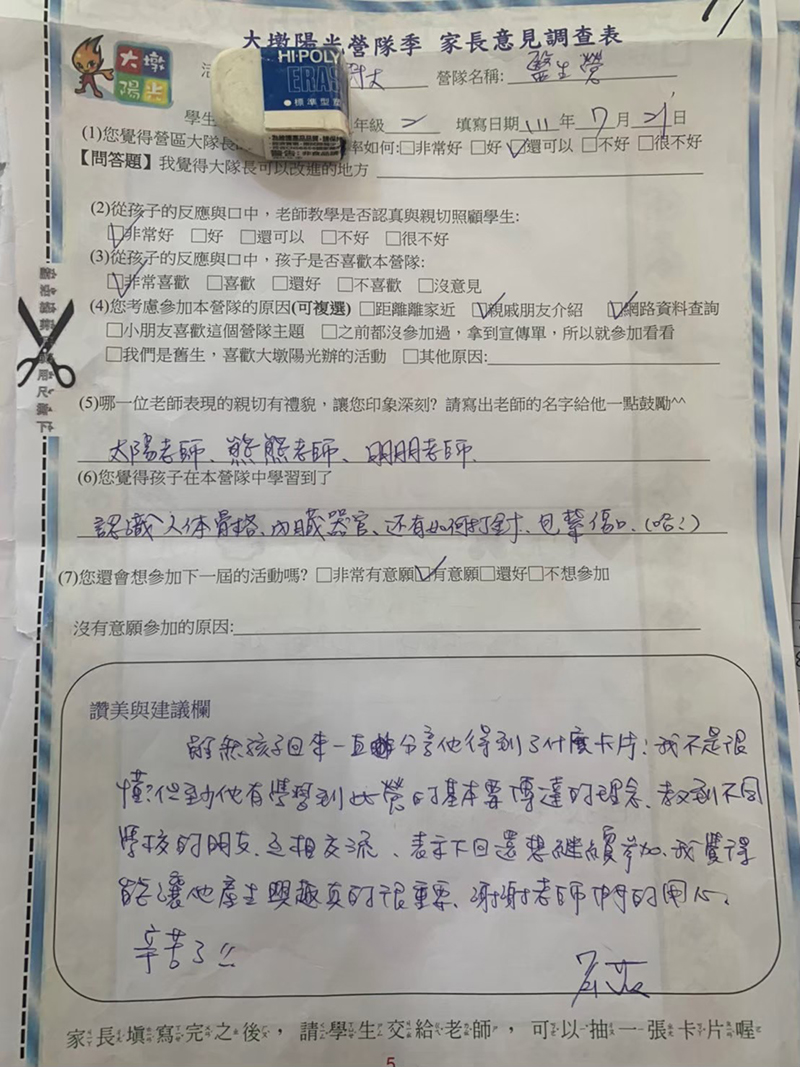 大墩陽光營隊季 家長意見調查表
大墩
陽光
HI-POLY
ERAS
●標準型
營隊名稱: 醫生營
學生
年級 二 填寫日期 111 年 7 月 21 日
(1)您覺得營區大隊長的 率如何:□非常好 □好 ☑還可以 □不好 □很不好
【問答題】我覺得大隊長可以改進的地方
(2)從孩子的反應與口中，老師教學是否認真與親切照顧學生:
☑非常好 □好 □還可以 □不好 □很不好
(3)從孩子的反應與口中，孩子是否喜歡本營隊:
☑非常喜歡 □喜歡 □還好 □不喜歡 □沒意見
(4)您考慮參加本營隊的原因(可複選) □距離離家近 ☑親戚朋友介紹 ☑網路資料查詢
□小朋友喜歡這個營隊主題 □之前都沒參加過，拿到宣傳單，所以就參加看看
□我們是舊生，喜歡大墩陽光辦的活動 □其他原因:
(5)哪一位老師表現的親切有禮貌，讓您印象深刻? 請寫出老師的名字給他一點鼓勵^^
太陽老師、熊熊老師、明明老師.
(6)您覺得孩子在本營隊中學習到了
認識人体骨格、內臟器官、还有如何打針、包紮傷口.(哈!)
(7)您還會想參加下一屆的活動嗎? □非常有意願☑有意願□還好□不想參加
沒有意願參加的原因:
讚美與建議欄
雖然孩子回來一直分享他得到了什麼卡片!我不是很
懂?但至少他有學習到此營的基本要傳達的理念、交到不同
學校的朋友、互相交流、表示下回還想繼續參加.我覺得
能讓他產生興趣真的很重要、謝謝老師們的用心.
辛苦了!!
家長填寫完之後，請學生交給老師，可以抽一張卡片喔
5